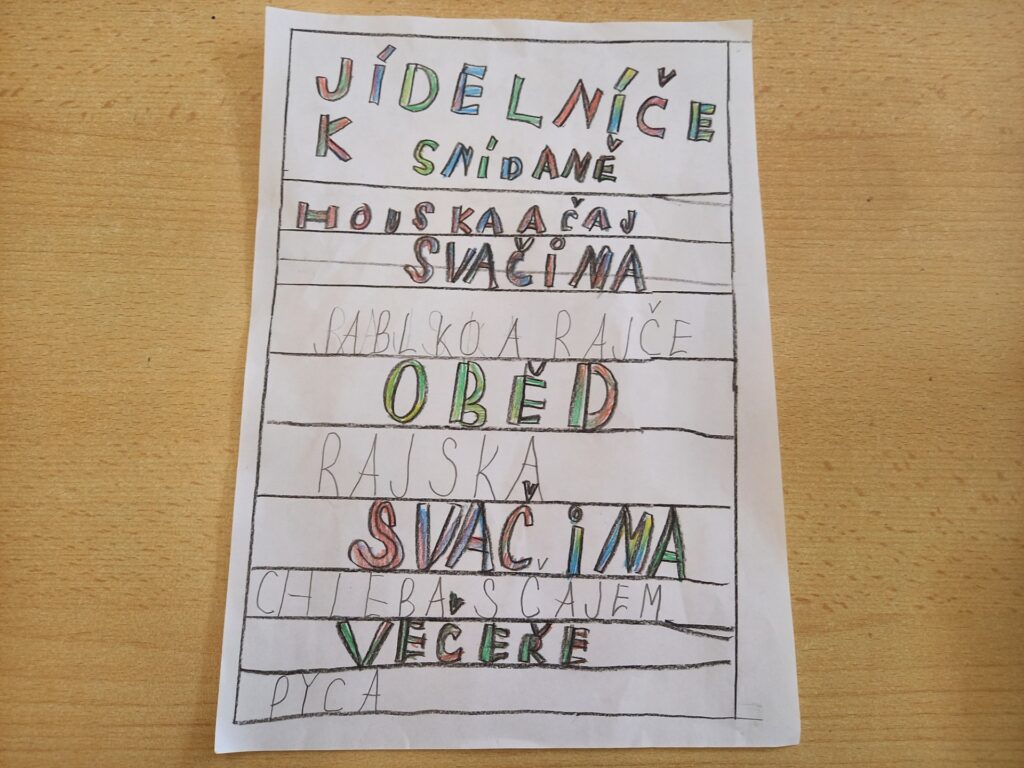 JÍDELNÍČE
K SNÍDANĚ
HOUSKA A ČAJ
SVAČINA
JABLKO A RAJČE
OBĚD
RAJSKÁ
SVAČINA
CHLEBA S ČAJEM
VEČEŘE
PYCA